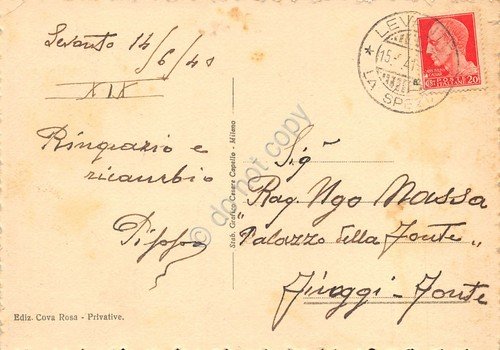 Levanto 14/6/41
XIX
Ringrazio e
ricambio
Pippo
Ediz. Cova Rosa - Privative.
Stab. Grafico Cesare Capello - Milano
LEV
15. 41
LA SPEZIA
20
Sig
Rag. Ugo Massa
"Palazzo della Fonte"
Fiuggi - Fonte
do not copy